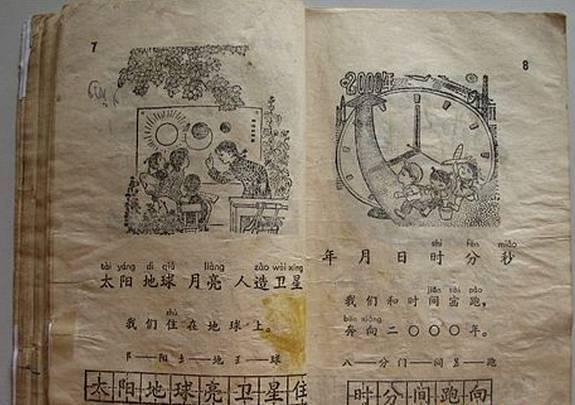 7
tài yáng dì qiú liàng zào wèi xīng
太阳 地球 月亮 人造卫星
zhù
我们住在地球上。
阝——阳 土——地 王——球
太阳地球亮卫星住
8
2000年
shí fēn miǎo
年 月 日 时 分 秒
jiān sài pǎo
我们和时间赛跑，
bēn xiàng
奔向二〇〇〇年。
八——分 门——间 𧾷——跑
时分间跑向